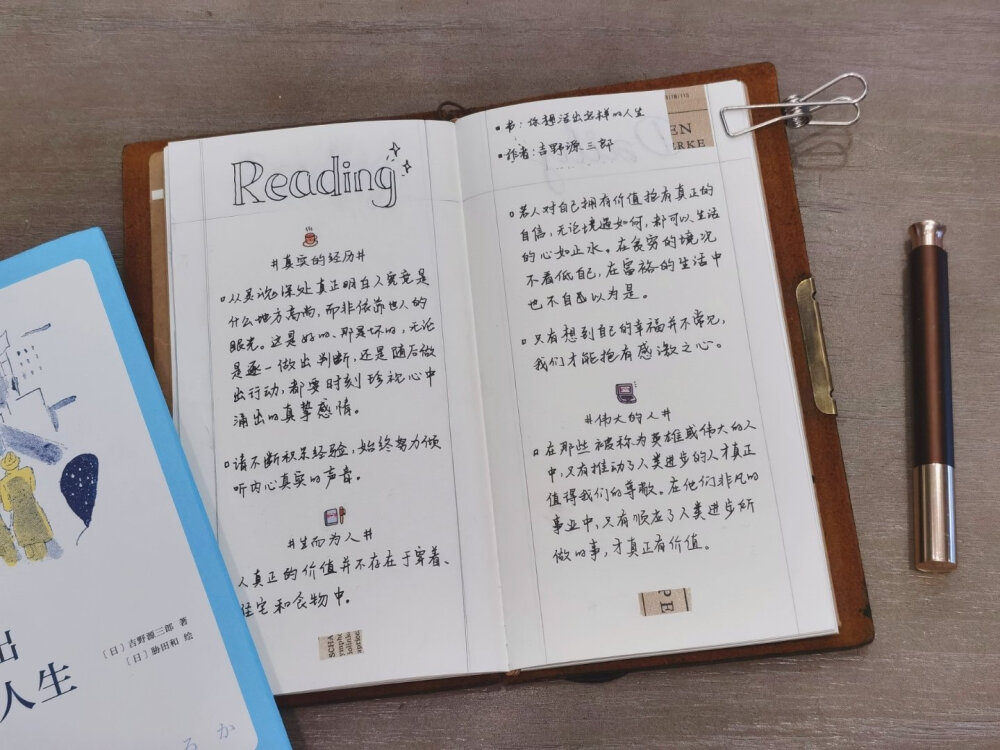 Reading
#真实的经历#
从灵魂深处真正明白人究竟是
什么地方高尚，而非依靠他人的
眼光。这是好的、那是坏的，无论
是逐一做出判断，还是随后做
出行动，都要时刻珍视心中
涌出的真挚感情。
请不断积累经验，始终努力倾
听内心真实的声音。
#生而为人#
人真正的价值并不存在于穿着、
住宅和食物中。
SCHA
ymphe
iolinke
aprice
书：你想活出怎样的人生
作者：吉野源三郎
EN
ERKE
若人对自己拥有价值抱有真正的
自信，无论境遇如何，都可以生活
的心如止水。在贫穷的境况
不看低自己，在富裕的生活中
也不自以为是。
只有想到自己的幸福并不常见，
我们才能抱有感激之心。
#伟大的人#
在那些被称为英雄或伟大的人
中，只有推动了人类进步的人才真正
值得我们的尊敬。在他们非凡的
事业中，只有顺应了人类进步所
做的事，才真正有价值。
PE
〔日〕吉野源三郎 著
〔日〕胁田和 绘
出
人生
ろか